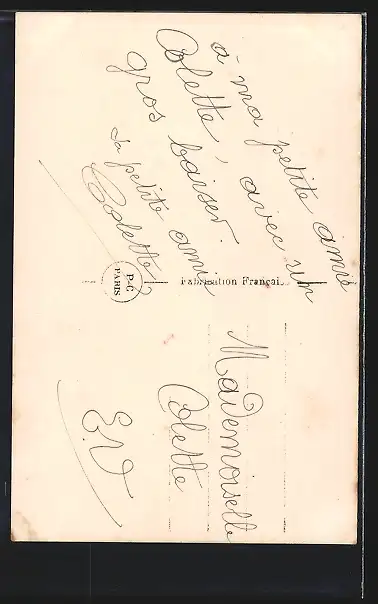 à ma petite amie
Colette, avec un
gros baiser.
La petite amie
Colette
P-C
PARIS
Fabrication Française
Mademoiselle
Colette
E.V